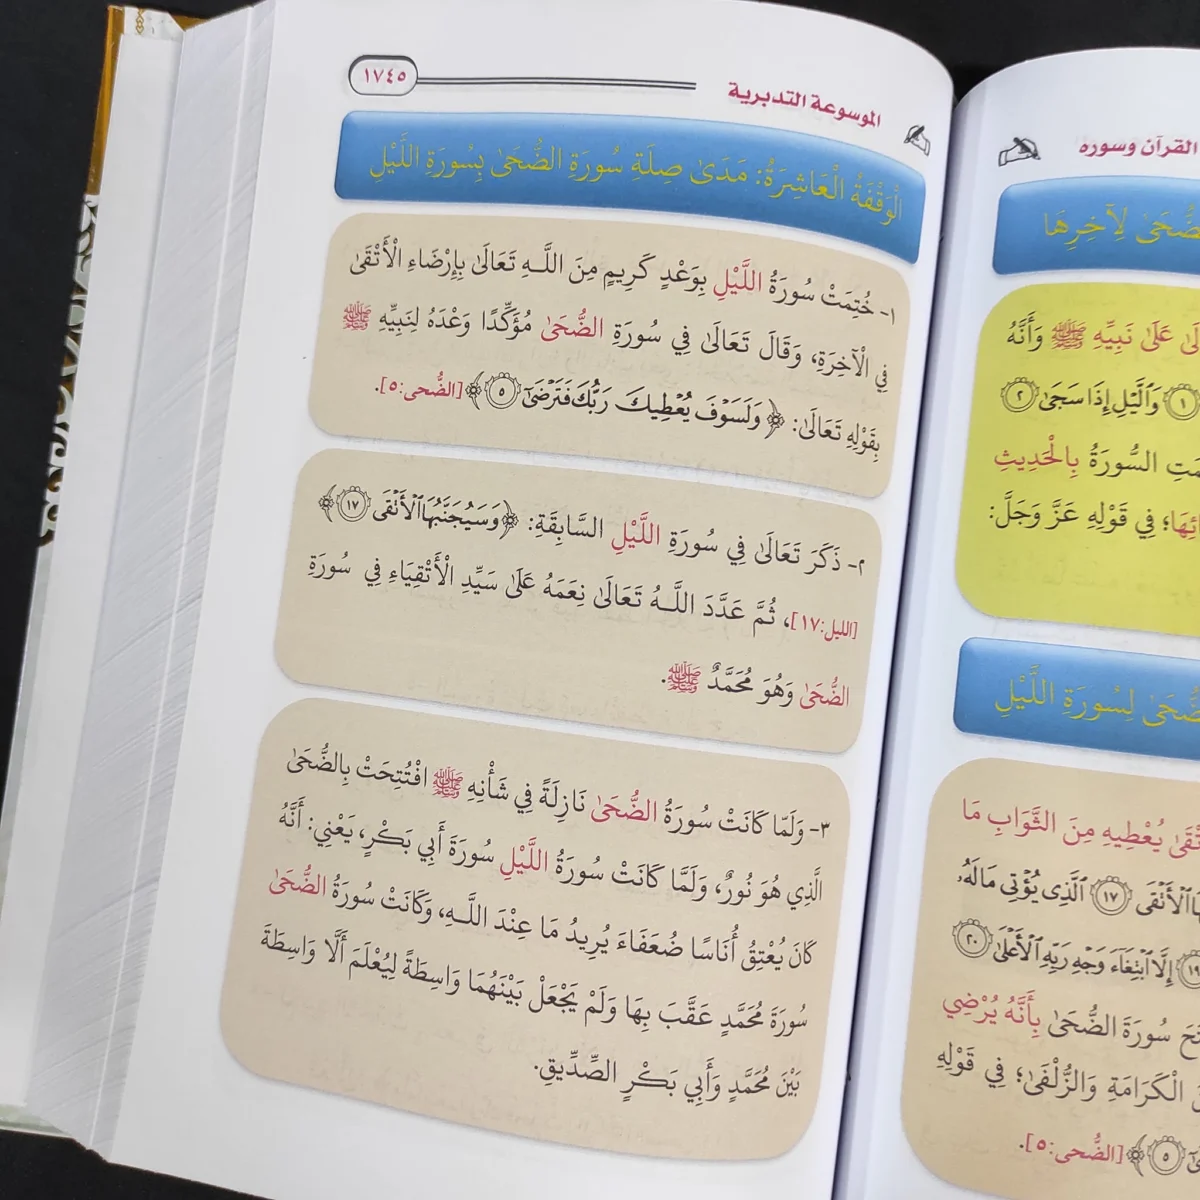 القرآن وسوره
ضُّحَىٰ لِآخِرِهَا
عَلَىٰ نَبِيِّهِ ﷺ وَأَنَّهُ
١ وَٱلَّيْلِ إِذَا سَجَىٰ ٢
السُّورَةُ بِالْحَدِيثِ
فِي قَوْلِهِ عَزَّ وَجَلَّ:
لِسُورَةِ اللَّيْلِ
يُعْطِيهِ مِنَ الثَّوَابِ مَا
ٱلْأَتْقَى ١٧ ٱلَّذِى يُؤْتِى مَالَهُۥ
١٩ إِلَّا ٱبْتِغَآءَ وَجْهِ رَبِّهِ ٱلْأَعْلَىٰ ٢٠
سُورَةَ الضُّحَىٰ بِأَنَّهُ يُرْضِي
الْكَرَامَةِ وَالزُّلْفَىٰ؛ فِي قَوْلِهِ
٥ ﴾ [الضُّحى:٥].
الموسوعة التدبرية ١٧٤٥
الْوَقْفَةُ الْعَاشِرَةُ: مَدَىٰ صِلَةِ سُورَةِ الضُّحَىٰ بِسُورَةِ اللَّيْلِ
١- خُتِمَتْ سُورَةُ اللَّيْلِ بِوَعْدٍ كَرِيمٍ مِنَ اللَّـهِ تَعَالَىٰ بِإِرْضَاءِ الْأَتْقَىٰ
فِي الْآخِرَةِ، وَقَالَ تَعَالَىٰ فِي سُورَةِ الضُّحَىٰ مُؤَكِّدًا وَعْدَهُ لِنَبِيِّهِ ﷺ
بِقَوْلِهِ تَعَالَىٰ: ﴿ وَلَسَوْفَ يُعْطِيكَ رَبُّكَ فَتَرْضَىٰٓ ٥ ﴾ [الضُّحى:٥].
٢- ذَكَرَ تَعَالَىٰ فِي سُورَةِ اللَّيْلِ السَّابِقَةِ: ﴿ وَسَيُجَنَّبُهَا ٱلْأَتْقَى ١٧ ﴾
[الليل:١٧]، ثُمَّ عَدَّدَ اللَّـهُ تَعَالَىٰ نِعَمَهُ عَلَىٰ سَيِّدِ الْأَتْقِيَاءِ فِي سُورَةِ
الضُّحَىٰ وَهُوَ مُحَمَّدٌ ﷺ.
٣- وَلَمَّا كَانَتْ سُورَةُ الضُّحَىٰ نَازِلَةً فِي شَأْنِهِ ﷺ افْتُتِحَتْ بِالضُّحَىٰ
الَّذِي هُوَ نُورٌ، وَلَمَّا كَانَتْ سُورَةُ اللَّيْلِ سُورَةَ أَبِي بَكْرٍ، يَعْنِي: أَنَّهُ
كَانَ يُعْتِقُ أُنَاسًا ضُعَفَاءَ يُرِيدُ مَا عِنْدَ اللَّـهِ، وَكَانَتْ سُورَةُ الضُّحَىٰ
سُورَةَ مُحَمَّدٍ عَقَّبَ بِهَا وَلَمْ يَجْعَلْ بَيْنَهُمَا وَاسِطَةً لِيُعْلَمَ أَلَّا وَاسِطَةَ
بَيْنَ مُحَمَّدٍ وَأَبِي بَكْرٍ الصِّدِّيقِ.